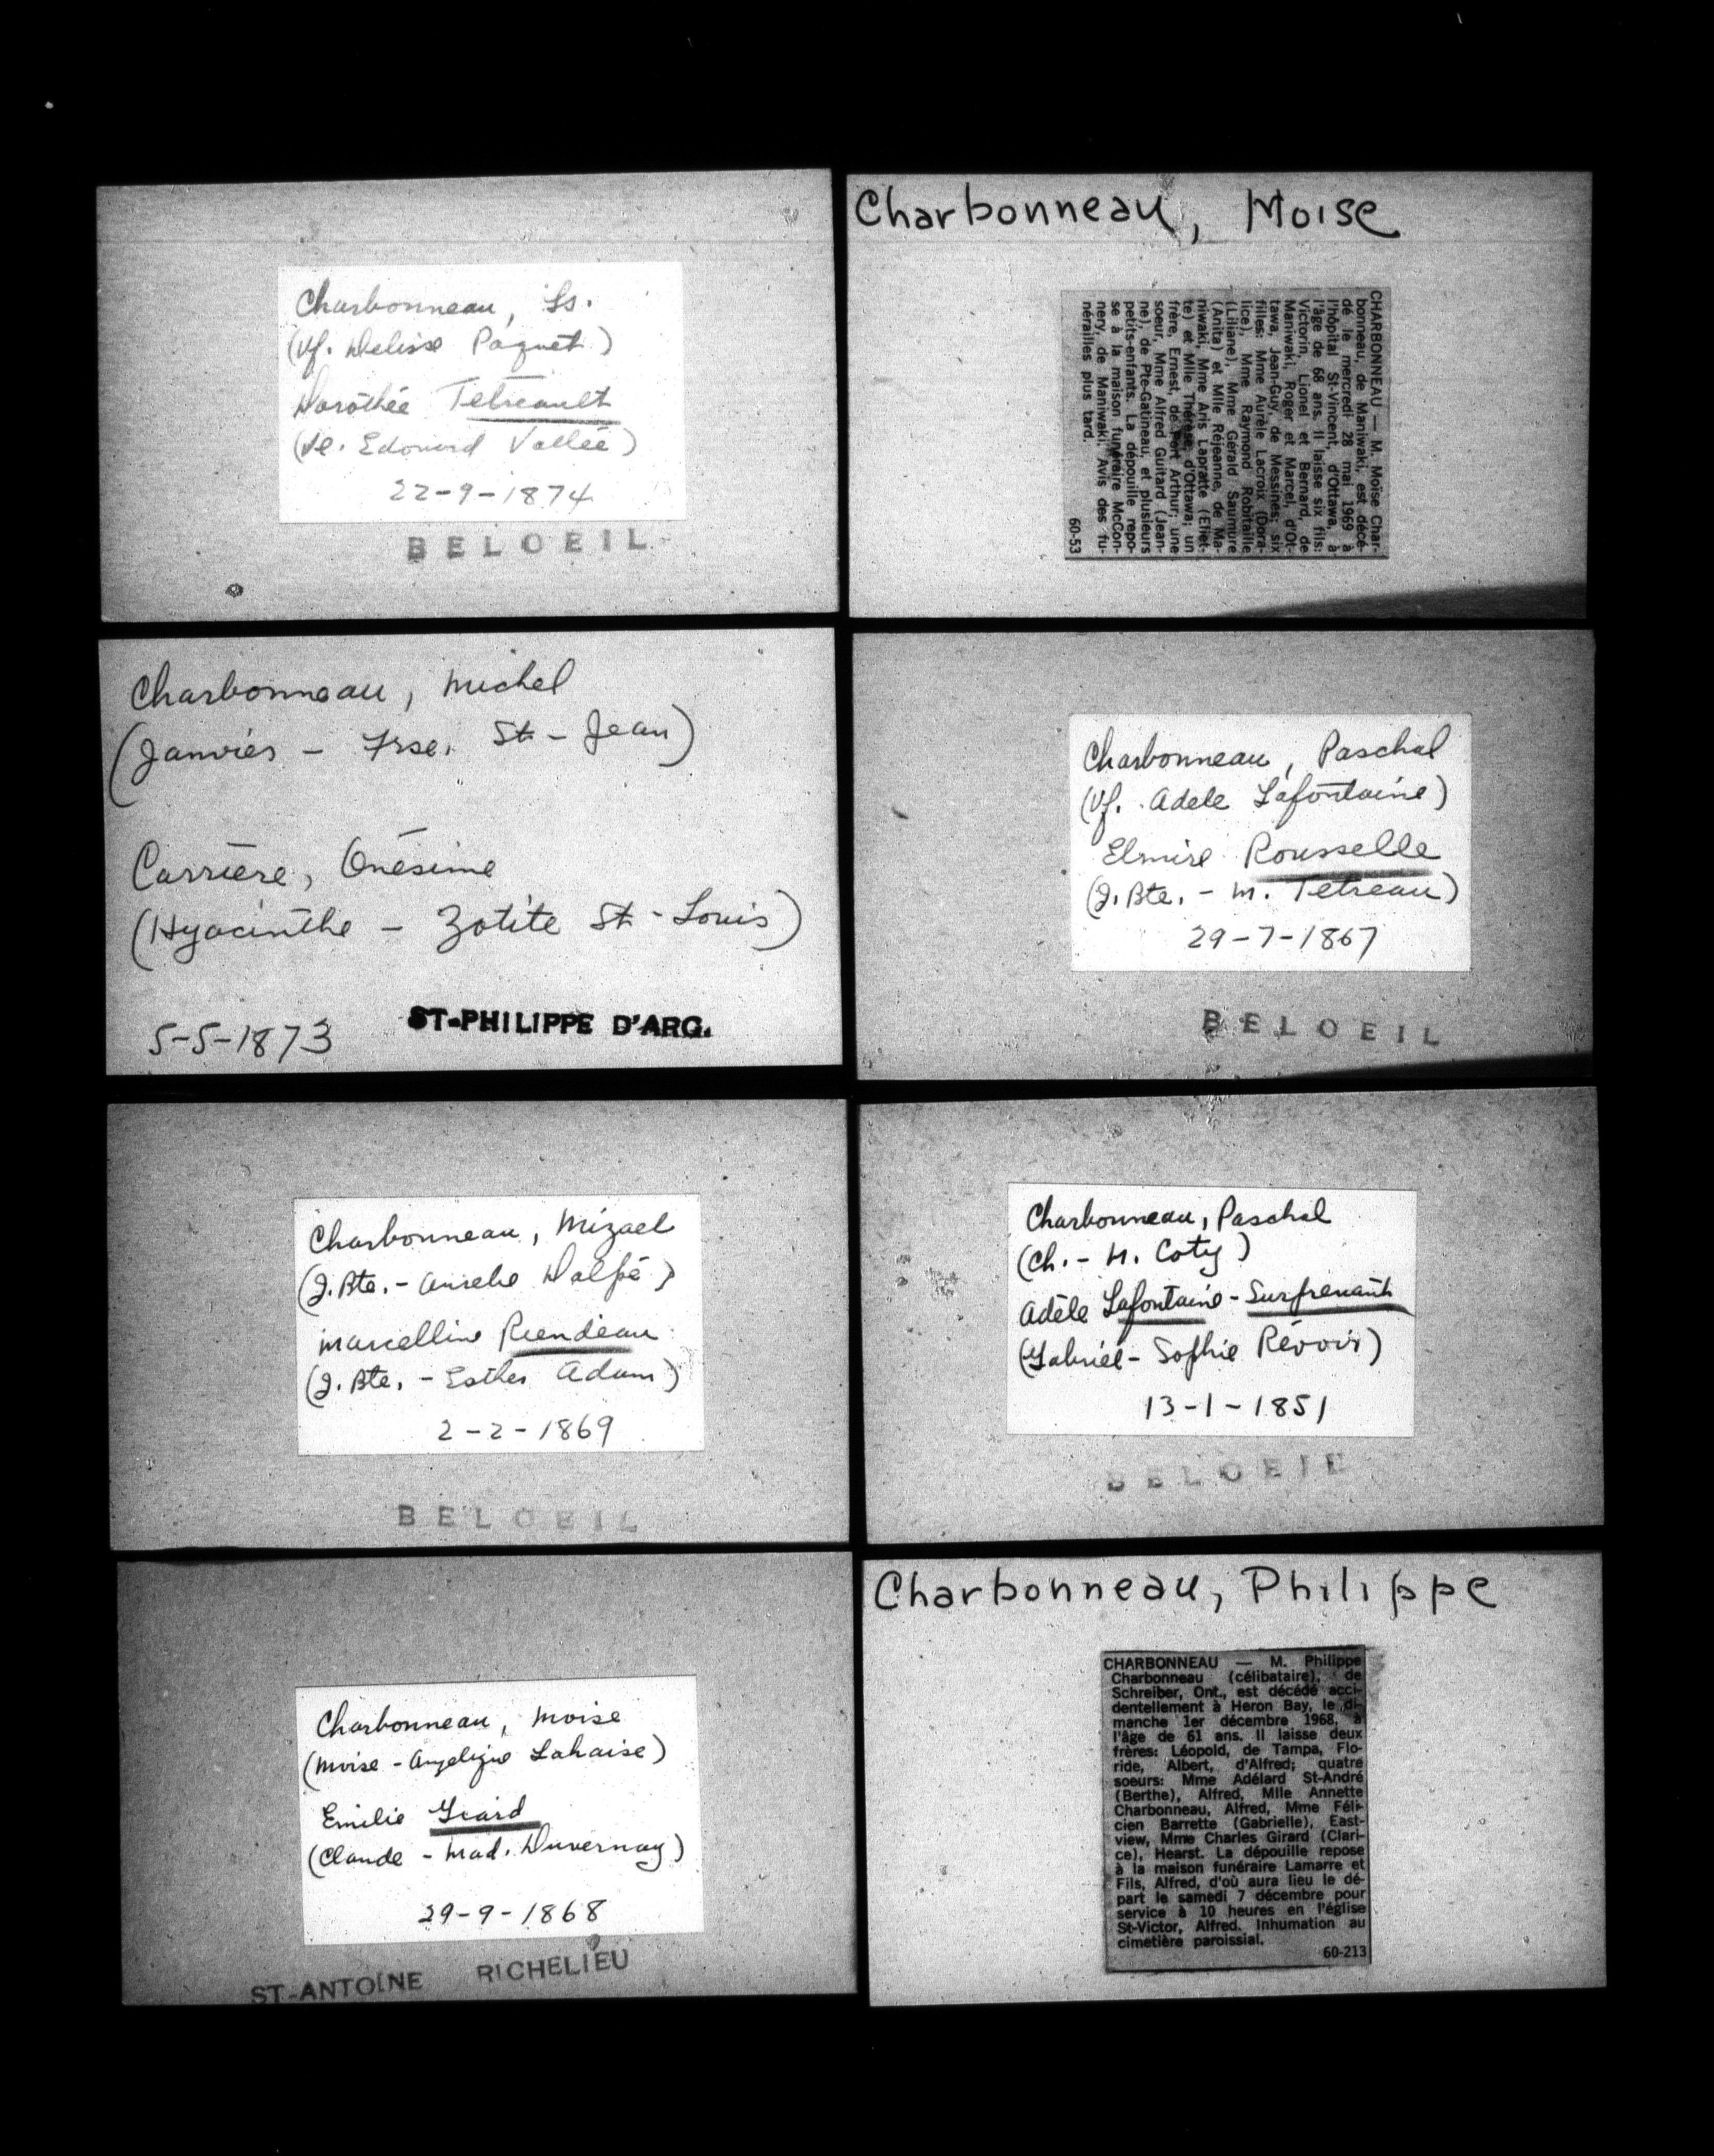 Charbonneau, Ls.
(Vf. Delisse Paquet)
Dorothée Tetreault
(Ve. Edouard Vallée)
22-9-1874
BELOEIL
Charbonneau, Michel
(Janvier - Frse. St-Jean)
Carrière, Onésime
(Hyacinthe - Zotite St-Louis)
5-5-1873
ST-PHILIPPE D'ARG.
Charbonneau, Mizael
(J. Bte. - Aurelie Dalpé)
Marcelline Riendeau
(J. Bte. - Esther Adam)
2-2-1869
BELOEIL
Charbonneau, Moise
(Moise - Angelique Lahaise)
Emilie Giard
(Claude - Mad. Duvernay)
29-9-1868
ST-ANTOINE RICHELIEU
Charbonneau, Moise
CHARBONNEAU — M. Moïse Char-
bonneau, de Maniwaki, est décé-
dé le mercredi 28 mai 1969 à
l'hôpital St-Vincent, d'Ottawa, à
l'âge de 68 ans. Il laisse six fils:
Victorin, Lionel et Bernard, de
Maniwaki, Roger et Marcel, d'Ot-
tawa, Jean-Guy, de Messines; six
filles: Mme Aurèle Lacroix (Dora-
lice), Mme Raymond Robitaille
(Liliane), Mme Gérald Saumure
(Anita) et Mlle Réjeanne, de Ma-
niwaki, Mme Aris Lapratte (Eliet-
te) et Mlle Thérèse, d'Ottawa; un
frère, Ernest, de Port Arthur; une
soeur, Mme Alfred Guitard (Jean-
ne), de Pte-Gatineau, et plusieurs
petits-enfants. La dépouille repo-
se à la maison funéraire McCon-
nery, de Maniwaki. Avis des fu-
nérailles plus tard.
60-53
Charbonneau, Paschal
(Vf. Adele Lafontaine)
Elmire Rousselle
(J. Bte. - M. Tetreau)
29-7-1867
BELOEIL
Charbonneau, Paschal
(Ch. - H. Coty)
Adèle Lafontaine - Surprenant
(Gabriel - Sophie Révoir)
13-1-1851
BELOEIL
Charbonneau, Philippe
CHARBONNEAU — M. Philippe
Charbonneau (célibataire), de
Schreiber, Ont., est décédé acci-
dentellement à Heron Bay, le di-
manche 1er décembre 1968, à
l'âge de 61 ans. Il laisse deux
frères: Léopold, de Tampa, Flo-
ride, Albert, d'Alfred; quatre
soeurs: Mme Adélard St-André
(Berthe), Alfred, Mlle Annette
Charbonneau, Alfred, Mme Féli-
cien Barrette (Gabrielle), East-
view, Mme Charles Girard (Clari-
ce), Hearst. La dépouille repose
à la maison funéraire Lamarre et
Fils, Alfred, d'où aura lieu le dé-
part le samedi 7 décembre pour
service à 10 heures en l'église
St-Victor, Alfred. Inhumation au
cimetière paroissial.
60-213